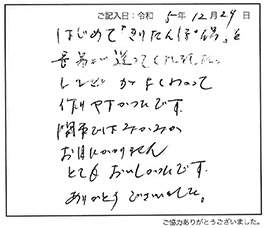 ご記入日：令和 5年 12月 29日
はじめて「きりたんぽ鍋」を
長男が送ってくれました。
レシピがよくわかって
作りやすかったです。
関市ではなかなか
お目にかかりません
とても おいしかったです。
ありがとう ございました。
ご協力ありがとうございました。